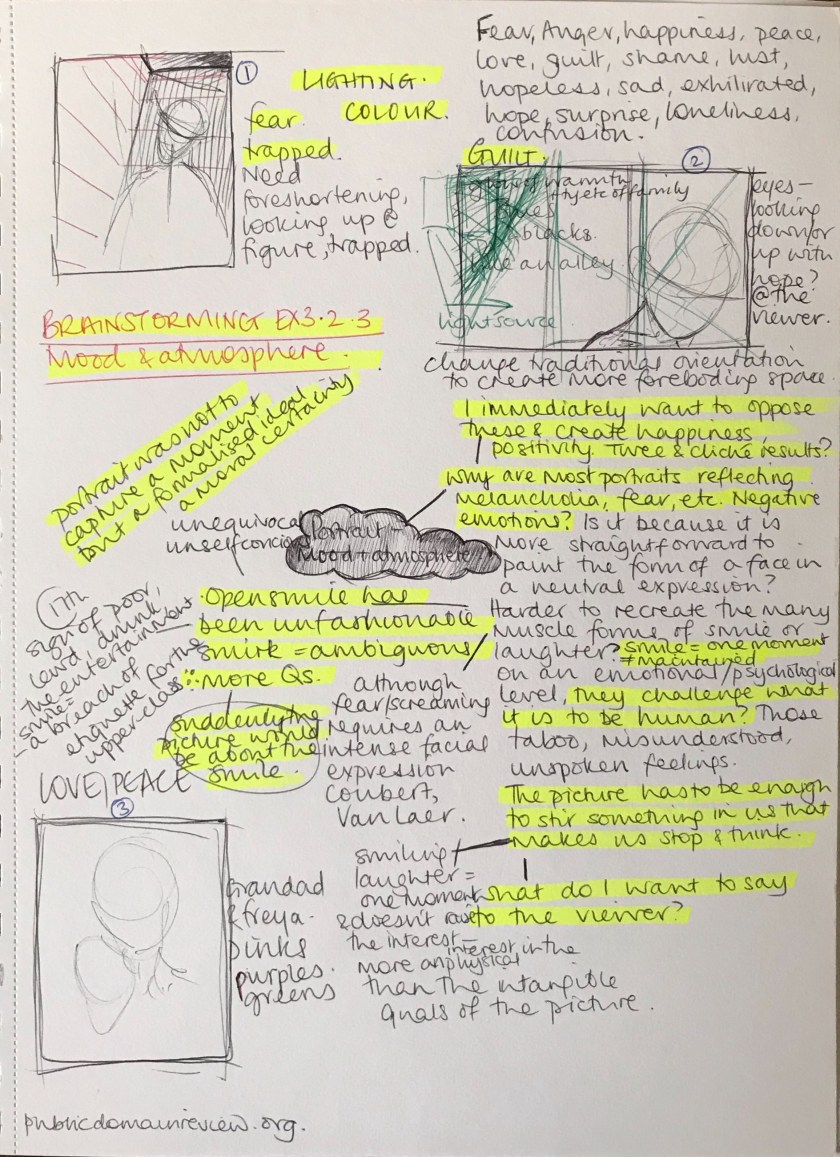 Fear, Anger, happiness, peace,
love, guilt, shame, lust,
hopeless, sad, exhilirated,
hope, surprise, loneliness,
confusion.
①
LIGHTING.
COLOUR.
fear.
trapped.
Need
foreshortening,
looking up @
figure, trapped.
GUILT.
②
warmth
etc of family
blacks.
an alley
lightsource
eyes-
looking
down/or
up with
hope?
@ the
viewer.
change traditional orientation
to create more foreboding space.
BRAINSTORMING EX3.2.3
Mood & atmosphere.
portrait was not to
capture a moment
but a formalised ideal
a moral certainty
I immediately want to oppose
these & create happiness,
positivity. Twee & cliche results?
why are most portraits reflecting
melancholia, fear, etc. Negative
emotions? Is it because it is
more straightforward to
paint the form of a face in
a neutral expression?
Harder to recreate the many
muscle forms of smile or
laughter? smile = one moment
≠ maintained
on an emotional/psychological
level, they challenge what
it is to be human? Those
taboo, misunderstood,
unspoken feelings.
The picture has to be enough
to stir something in us that
makes us stop & think.
what do I want to say
to the viewer?
unequivocal
unselfconcious
Portrait
Mood + atmosphere
Open smile has
been unfashionable
smirk = ambiguous
∵ more Qs.
17th
sign of poor,
lewd, drunk,
the entertainment
smile =
- a breach of
etiquette for the
upper-class
suddenly the
picture would
be about the
smile.
although
fear/screaming
requires an
intense facial
expression
Courbert,
Van Laer.
smiling/
laughter =
one moment
& doesn't raise
the interest -
interest in the
more physical
than the intangible
quals of the picture.
LOVE/PEACE
③
Grandad
& freya-
pinks
purples.
greens
publicdomainreview.org.